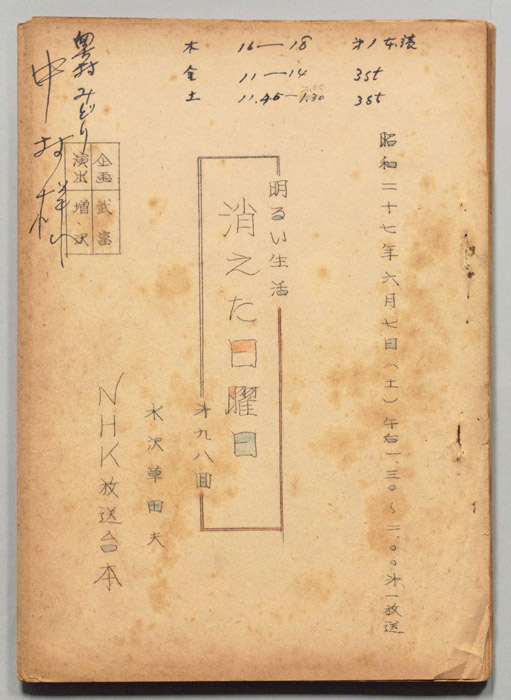 木 16―18 オ1本読
金 11―14 3st
土 11.45―1.30 3st
昭和二十七年六月七日(土)午后一、三〇~二、〇〇オ一放送
明るい生活
消えた日曜日
オ九八回
水沢草田夫
NHK放送台本
企画 武富
演出 増沢
奥村みどり
中村様